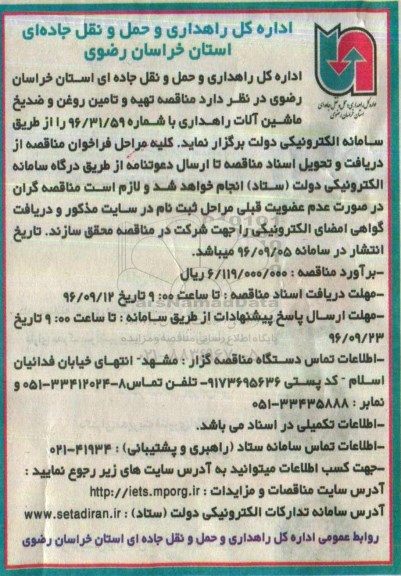 اداره کل راهداری و حمل و نقل جاده‌ای
استان خراسان رضوی
اداره کل راهداری و حمل و نقل جاده ای استان خراسان
رضوی در نظر دارد مناقصه تهیه و تامین روغن و ضدیخ
ماشین آلات راهداری با شماره ۹۶/۳۱/۵۹ را از طریق
سامانه الکترونیکی دولت برگزار نماید. کلیه مراحل فراخوان مناقصه از
دریافت و تحویل اسناد مناقصه تا ارسال دعوتنامه از طریق درگاه سامانه
الکترونیکی دولت (ستاد) انجام خواهد شد و لازم است مناقصه گران
در صورت عدم عضویت قبلی مراحل ثبت نام در سایت مذکور و دریافت
گواهی امضای الکترونیکی را جهت شرکت در مناقصه محقق سازند. تاریخ
انتشار در سامانه ۹۶/۰۹/۰۵ میباشد.
-برآورد مناقصه : ۶/۱۱۹/۰۰۰/۰۰۰ ریال
-مهلت دریافت اسناد مناقصه : تا ساعت ۹:۰۰ تاریخ ۹۶/۰۹/۱۲
-مهلت ارسال پاسخ پیشنهادات از طریق سامانه : تا ساعت ۹:۰۰ تاریخ
۹۶/۰۹/۲۳
-اطلاعات تماس دستگاه مناقصه گزار : مشهد- انتهای خیابان فدائیان
اسلام - کد پستی ۹۱۷۳۶۹۵۶۳۶- تلفن تماس۸-۳۳۴۱۲۰۲۴-۰۵۱ و
نمابر : ۳۳۴۳۵۸۸۸-۰۵۱
-اطلاعات تکمیلی در اسناد می باشد.
-اطلاعات تماس سامانه ستاد (راهبری و پشتیبانی) : ۴۱۹۳۴-۰۲۱
-جهت کسب اطلاعات میتوانید به آدرس سایت های زیر رجوع نمایید :
آدرس سایت مناقصات و مزایدات : http://iets.mporg.ir
آدرس سامانه تدارکات الکترونیکی دولت (ستاد) : www.setadiran.ir
روابط عمومی اداره کل راهداری و حمل و نقل جاده ای استان خراسان رضوی